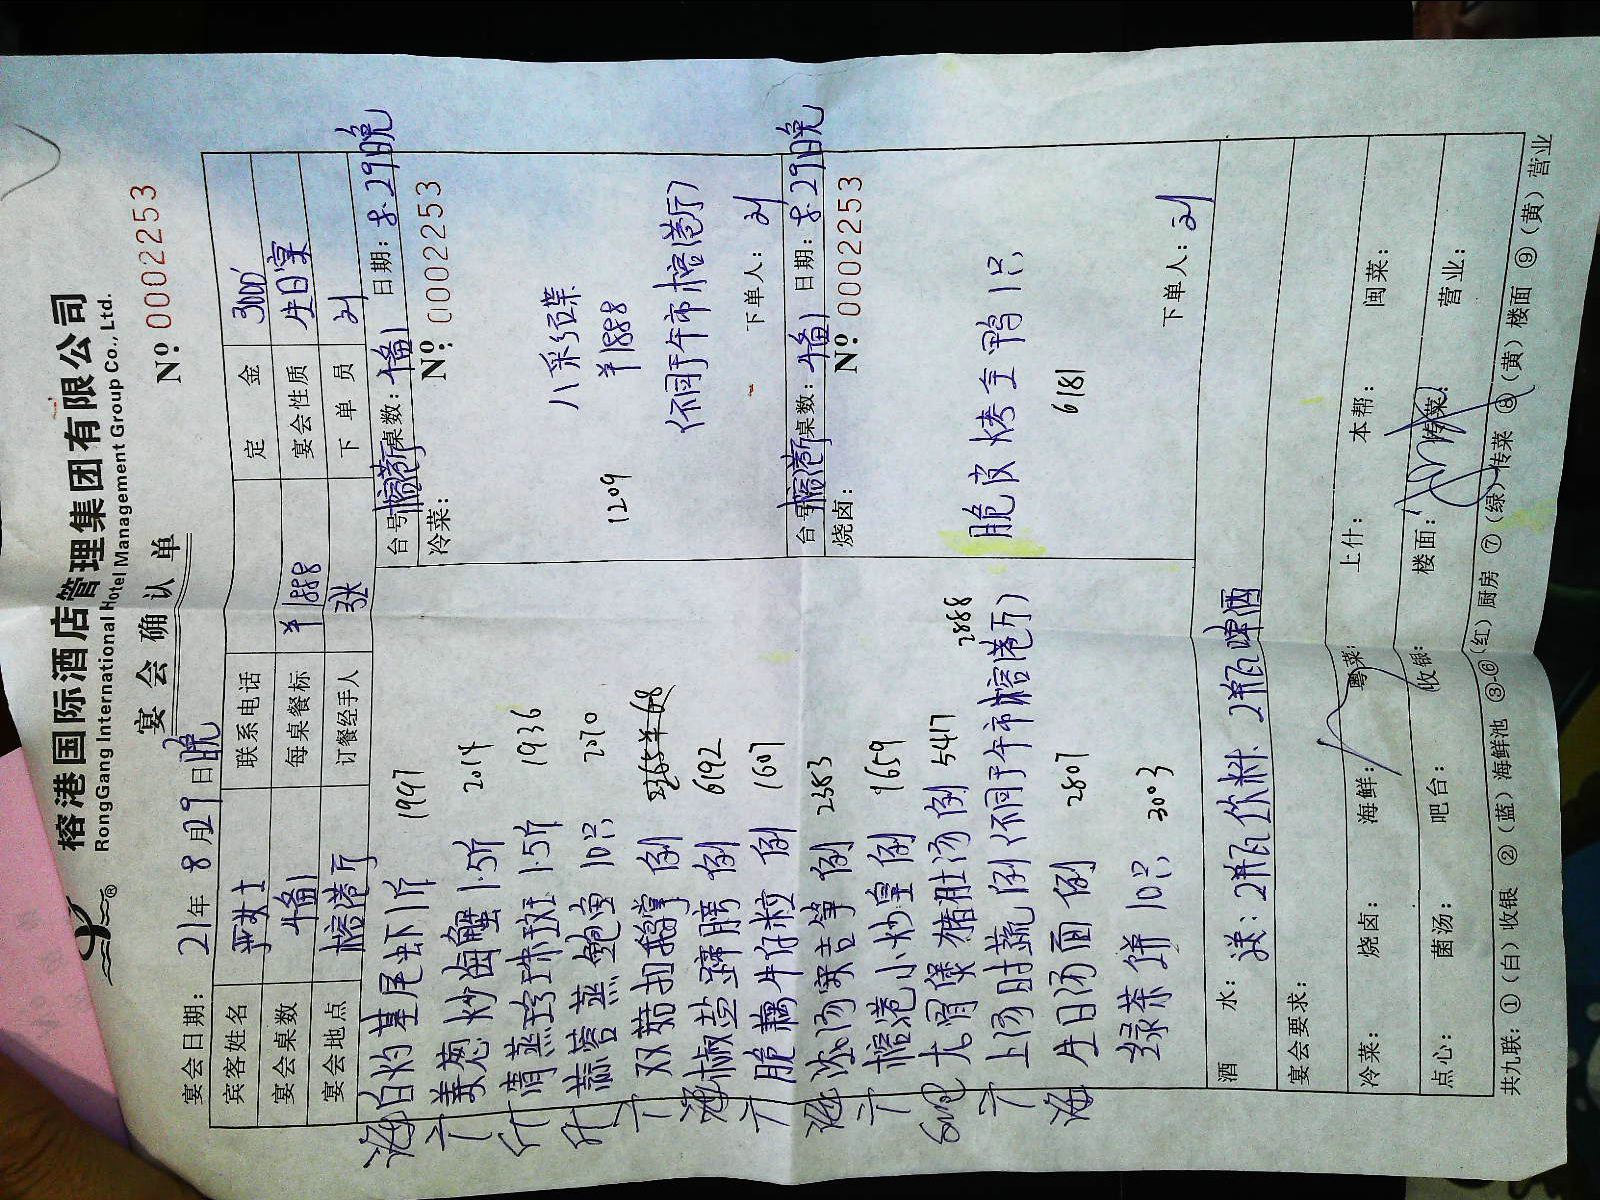 榕港国际酒店管理集团有限公司
RongGang International Hotel Management Group Co., Ltd.
宴会确认单
№: 0002253
宴会日期: 21年8月29日晚
宾客姓名 严女士 联系电话 定金 3000
宴会桌数 1备1 每桌餐标 ¥1888 宴会性质 生日宴
宴会地点 榕港厅 订餐经手人 张 下单员 刘
白灼基尾虾1斤 1997
姜葱炒海蟹1.5斤 2014
清蒸珍珠斑1.5斤 1936
蒜蓉蒸鲍鱼10只 2070
双菇扣鹅掌 例
椒盐蹄膀 例 6192
脆藕牛仔粒 例 1607
浓汤 例 2583
榕港小炒皇 例 1659
大骨煲猪肚汤 例 5417
上汤时蔬 例(不同于午市榕港厅) 2888
生日汤面 例 2807
绿茶饼10只 3003
台号: 榕港厅 桌数: 1备1 日期: 8.29晚
冷菜: №: 0002253
八彩碟
¥1888
1209
(不同于午市榕港厅)
下单人: 刘
台号: 榕港厅 桌数: 1备1 日期: 8.29晚
烧卤: №: 0002253
脆皮烤全鸭1只
6181
下单人: 刘
酒水: 送: 2瓶饮料 2瓶啤酒
宴会要求:
冷菜: 烧卤: 海鲜: 粤菜: 上什: 本帮: 闽菜:
点心: 菌汤: 吧台: 收银: 楼面: 传菜: 营业:
共九联: ①(白)收银 ②(蓝)海鲜池 ③-⑥(红)厨房 ⑦(绿)传菜 ⑧(黄)楼面 ⑨(黄)营业